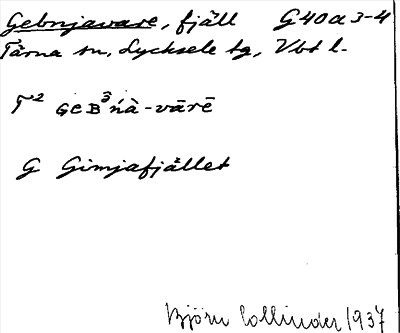 Gebnjavare, fjäll G40a3-4
Tärna sn, Lycksele tg, Vbt l.
T² GEBᶟńà-vārē
G Gimjafjället
Björn Collinder 1937